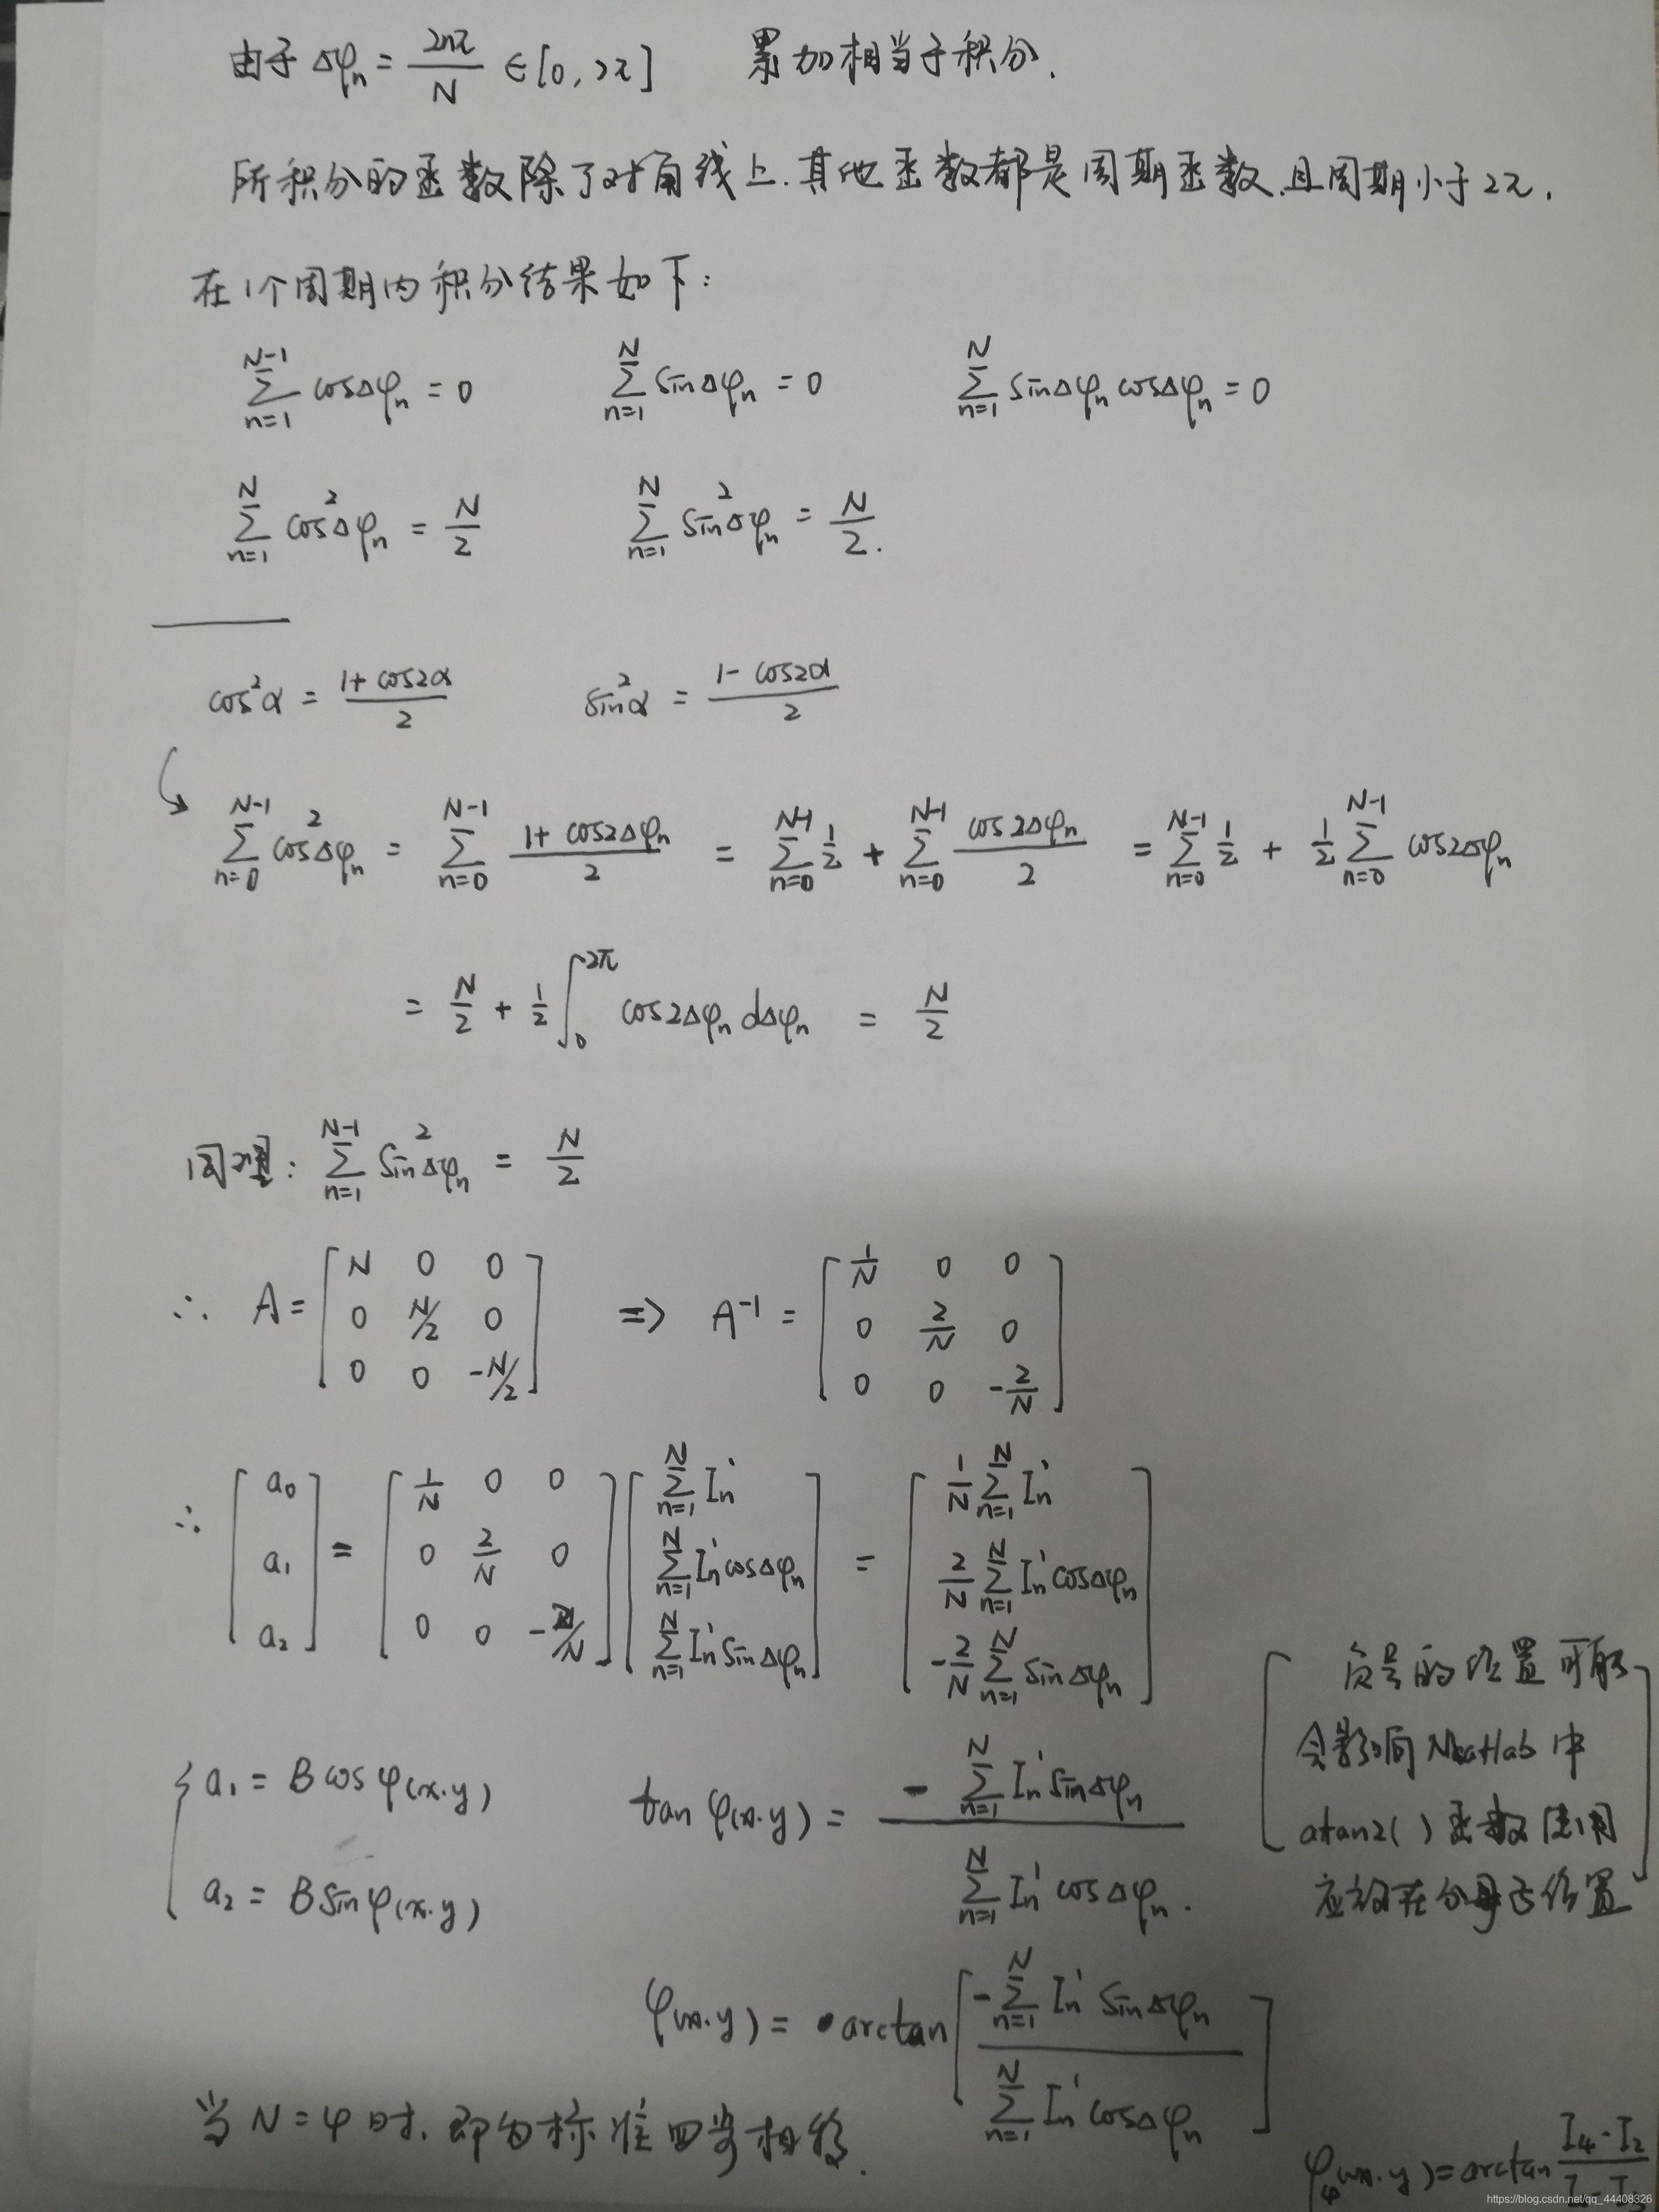 由于 Δφₙ = 2nπ/N ∈ [0, 2π] 累加相当于积分.
所积分的函数除了对角线上.其他函数都是周期函数.且周期小于2π.
在1个周期内积分结果如下:
∑_{n=1}^{N-1} cosΔφₙ = 0 ∑_{n=1}^{N} sinΔφₙ = 0 ∑_{n=1}^{N} sinΔφₙ cosΔφₙ = 0
∑_{n=1}^{N} cos²Δφₙ = N/2 ∑_{n=1}^{N} sin²Δφₙ = N/2.
cos²α = (1+cos2α)/2 sin²α = (1-cos2α)/2
∑_{n=0}^{N-1} cos²Δφₙ = ∑_{n=0}^{N-1} (1+cos2Δφₙ)/2 = ∑_{n=0}^{N-1} 1/2 + ∑_{n=0}^{N-1} (cos2Δφₙ)/2 = ∑_{n=0}^{N-1} 1/2 + 1/2 ∑_{n=0}^{N-1} cos2Δφₙ
= N/2 + 1/2 ∫_0^{2π} cos2Δφₙ dΔφₙ = N/2
同理: ∑_{n=1}^{N-1} sin²Δφₙ = N/2
∴ A = [N 0 0; 0 N/2 0; 0 0 -N/2] => A⁻¹ = [1/N 0 0; 0 2/N 0; 0 0 -2/N]
∴ [a₀; a₁; a₂] = [1/N 0 0; 0 2/N 0; 0 0 -2/N] [∑_{n=1}^{N} Iₙ'; ∑_{n=1}^{N} Iₙ'cosΔφₙ; ∑_{n=1}^{N} Iₙ'sinΔφₙ] = [1/N ∑_{n=1}^{N} Iₙ'; 2/N ∑_{n=1}^{N} Iₙ'cosΔφₙ; -2/N ∑_{n=1}^{N} sinΔφₙ]
{ a₁ = B cosφ(x.y)
a₂ = B sinφ(x.y)
tanφ(x.y) = -∑_{n=1}^{N} Iₙ'sinΔφₙ / ∑_{n=1}^{N} Iₙ'cosΔφₙ.
[负号的位置可能
会影响Matlab中
atan2( )函数使用]
应放在分母
位置
φ(x.y) = arctan[-∑_{n=1}^{N} Iₙ'sinΔφₙ / ∑_{n=1}^{N} Iₙ'cosΔφₙ]
当 N=4 时. 即为标准四步相移.
φ(x.y) = arctan (I₄-I₂)/
https://blog.csdn.net/qq_44408326